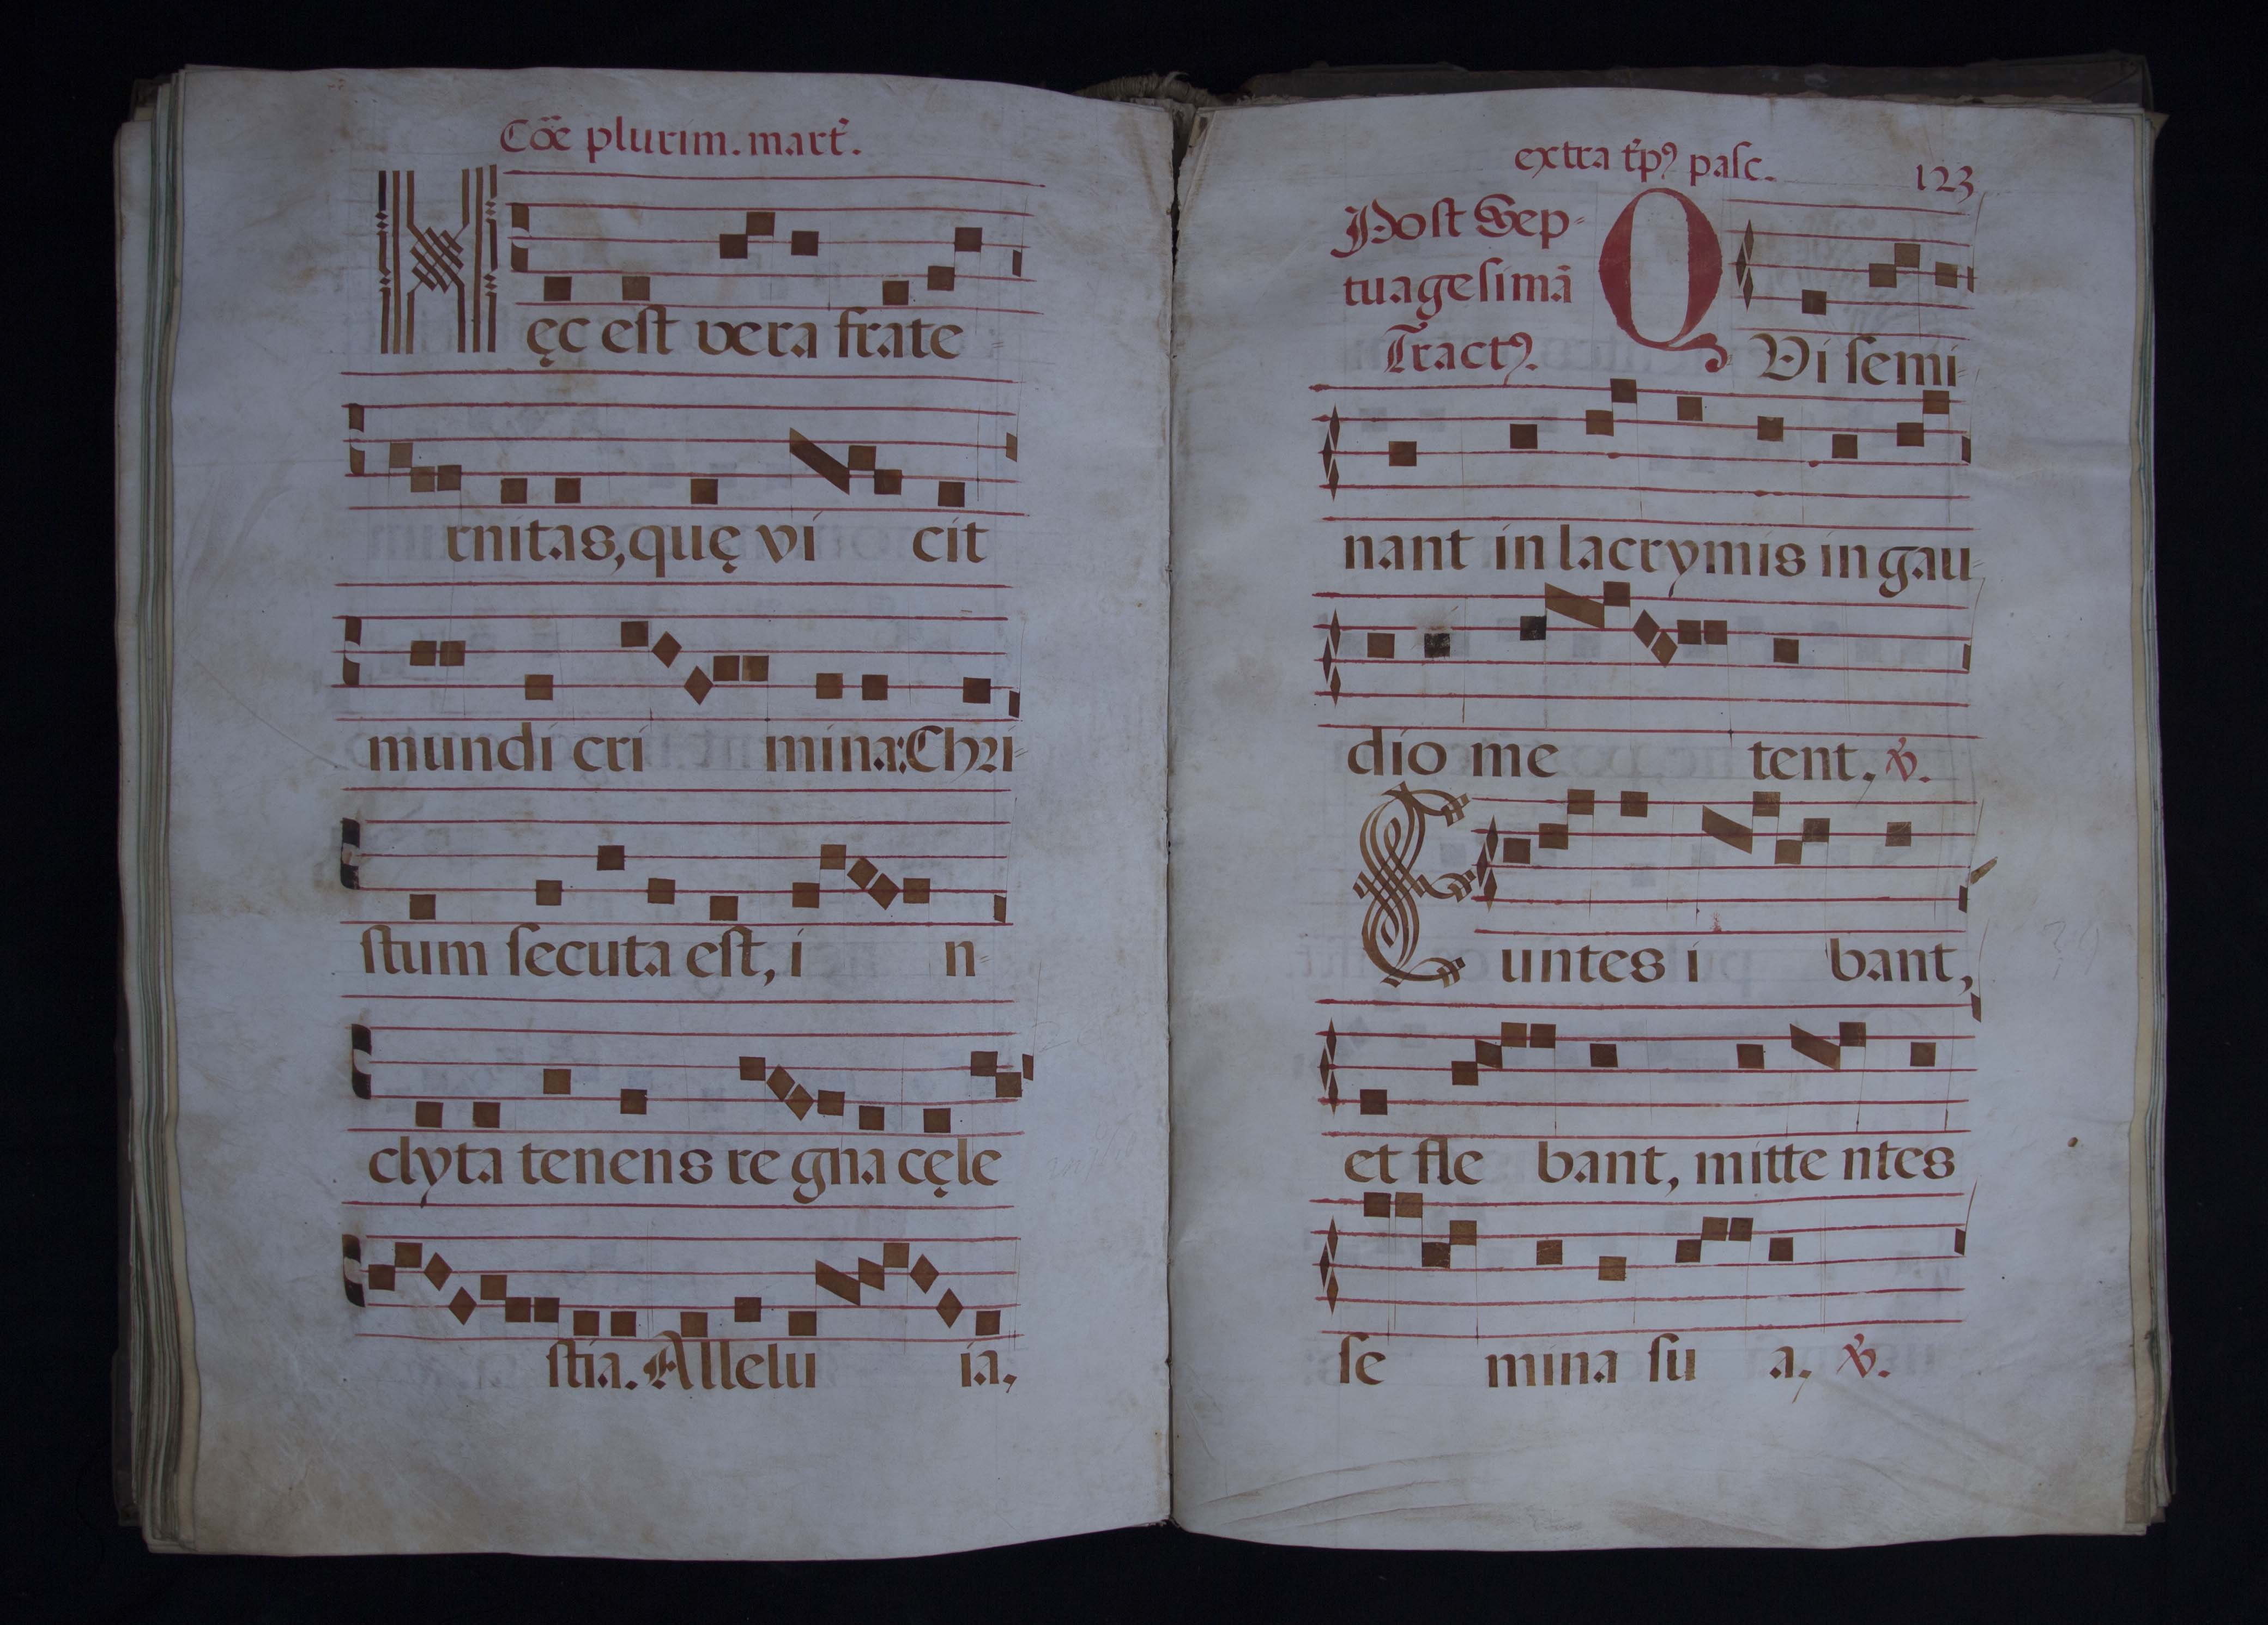 Cõe plurim. mart̃.
Hęc est vera frate
rnitas, quę vi cit
mundi cri mina: Chri-
stum secuta est, i n-
clyta tenens re gna cęle
stia. Allelu ia,
extra t̃pꝰ pasc.
123
Post Sep-
tuagesimã
Tractꝰ.
QVi semi
nant in lacrymis in gau-
dio me tent, ℣.
Euntes i bant,
et fle bant, mitte ntes
se mina su a, ℣.